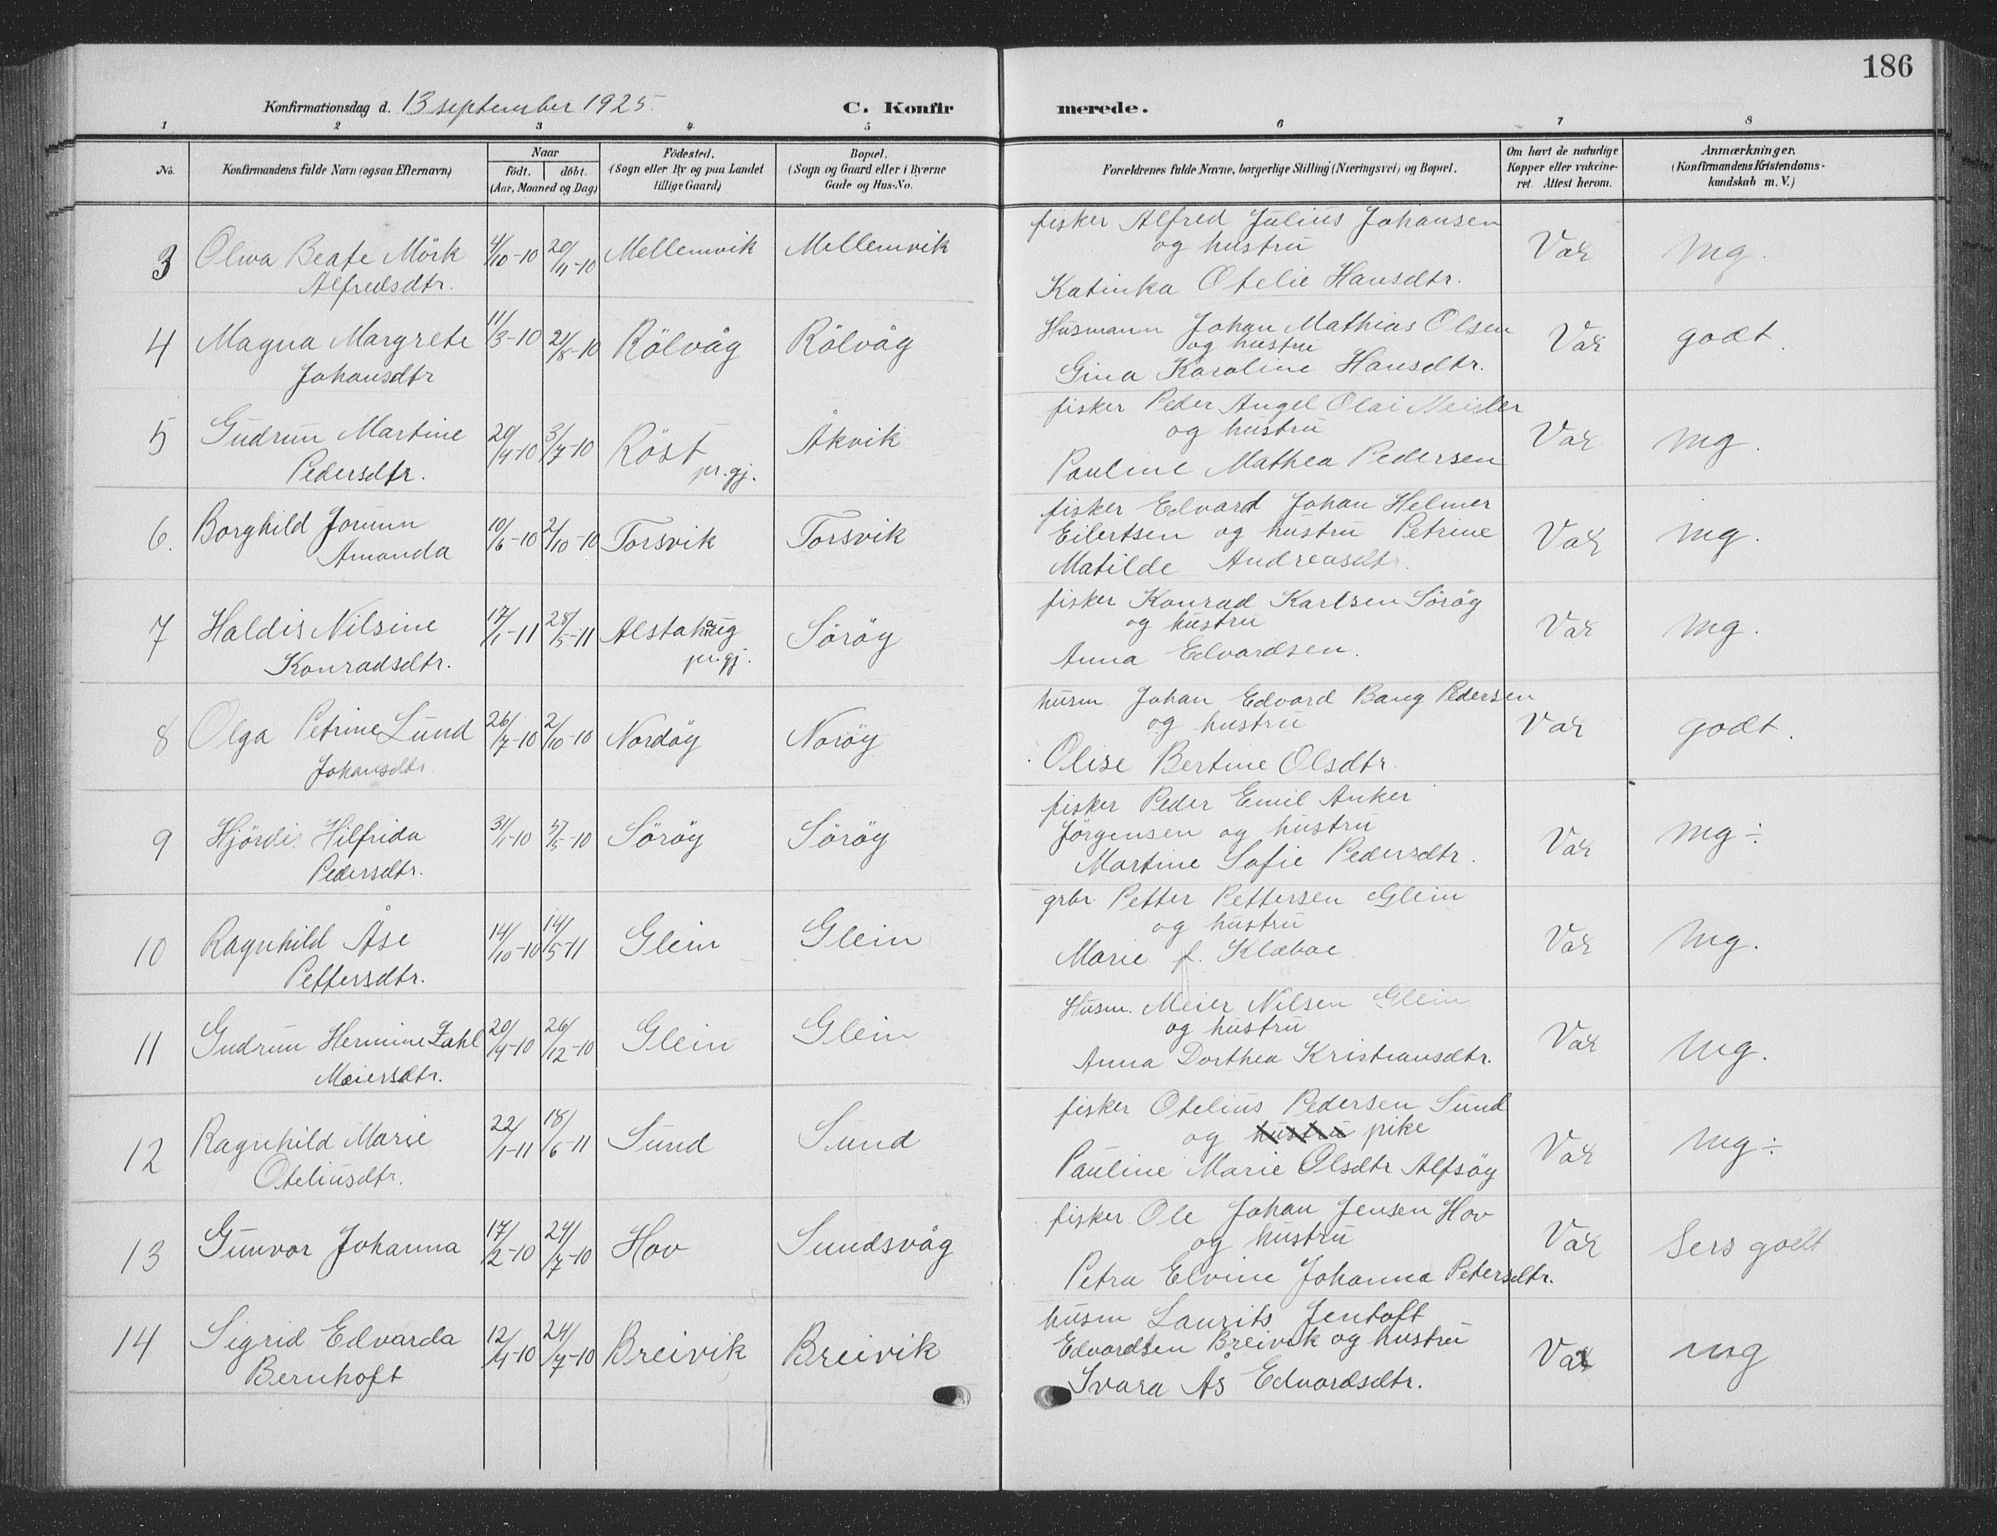 186
Konfirmationsdag d. 13 september 1925.
C. Konfirmerede.
1 2 3 4 5 6 7 8
No.
Konfirmandens fulde Navn (ogsaa Efternavn)
Naar
födt. döbt.
(Aar, Maaned og Dag)
Födested.
(Sogn eller By og paa Landet
tillige Gaard)
Bopæl.
(Sogn og Gaard eller i Byerne
Gade og Hus-No.
Forældrenes fulde Navne, borgerlige Stilling (Næringsvei) og Bopæl.
Om havt de naturlige
Kopper eller vakcine-
ret. Attest herom.
Anmærkninger.
(Konfirmandens Kristendoms-
kundskab m. V.)
3 Beate Mörk 4/10-10 20/11-10 Mellemvik Mellemvik
Alfredsdtr.
fisker Alfred Julius Johansen
og hustru
Katinka Otelie Hansdtr.
Vax mg.
4 Magna Margrete 11/3-10 21/8-10 Rölvåg Rölvåg
Johansdtr
Husmann Johan Mathias Olsen
og hustru
Gina Karoline Hansdtr.
Vax godt.
5 Gudrun Martine 20/4-10 3/7-10 Röst Åkvik
Pedersdtr. pr. gj.
fisker Peder Angel Olai Meisler
og hustru
Pauline Mathea Pedersen
Vax mg.
6. Borghild Jorunn 10/6-10 2/10-10 Torsvik Torsvik
Amanda
fisker Edvard Johan Helmer
Eilertsen og hustru Petrine
Matilde Andreasdtr.
Vax mg.
7 Haldis Nilsine 17/1-11 28/5-11 Alstahaug Söröy
Konradsdtr. pr. gj.
fisker Konrad Karlsen Söröy
og hustru
Anna Edvardsen.
Vax mg.
8 Olga Petrine Lund 26/7-10 2/10-10 Nordöy Noröy
Johansdtr
husm. Johan Edvard Bang Pedersen
og hustru
Olise Bertine Olsdtr.
Vax godt.
9 Hjördis Hilfrida 31/1-10 5/5-10 Söröy Söröy
Pedersdtr.
fisker Peder Emil Anker
Jörgensen og hustru
Martine Sofie Pedersdtr.
Vax mg ÷
10 Ragnhild Åse 14/10-10 14/5-11 Glein Glein
Pettersdtr.
grbr. Petter Pettersen Glein
og hustru
Marie f. Klæboe
Vax mg.
11 Gudrun Hermine Zahl 20/9-10 26/12-10 Glein Glein
Meiersdtr.
Husm. Meier Nilsen Glein
og hustru
Anna Dorthea Kristiansdtr.
Vax mg.
12 Ragnhild Marie 22/1-11 18/6-11 Sund Sund
Oteliusdtr.
fisker Otelius Pedersen Sund
og hustru pike
Pauline Marie Olsdtr Alfsöy
Vax mg ÷
13 Gunvor Johanna 17/2-10 24/7-10 Hov Sundsvåg
fisker Ole Johan Jensen Hov
og hustru
Petra Elvine Johanna Petersdtr.
Vax Sers godt
14 Sigrid Edvarda 12/4-10 24/7-10 Breivik Breivik
Bernhoft
husm Laurits Jentoft
Edvardsen Breivik og hustru
Svara Ås Edvardsdtr.
Vax mg